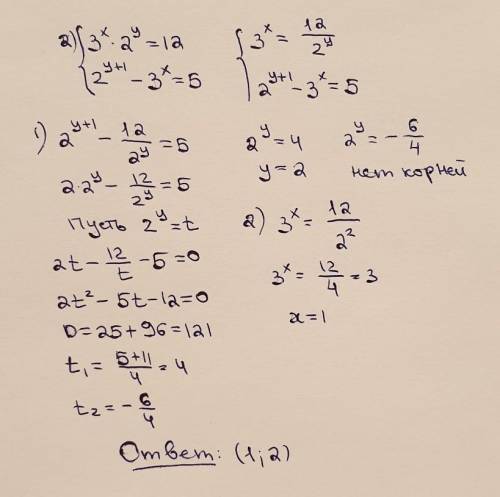 2) { 3ˣ · 2ʸ = 12
2ʸ⁺¹ − 3ˣ = 5
{ 3ˣ = 12/2ʸ
2ʸ⁺¹ − 3ˣ = 5
1) 2ʸ⁺¹ − 12/2ʸ = 5
2·2ʸ − 12/2ʸ = 5
Пусть 2ʸ = t
2t − 12/t − 5 = 0
2t² − 5t − 12 = 0
D = 25 + 96 = 121
t₁ = (5+11)/4 = 4
t₂ = − 6/4
2ʸ = 4 2ʸ = − 6/4
y = 2 нет корней
2) 3ˣ = 12/2²
3ˣ = 12/4 = 3
x = 1
Ответ: (1; 2)